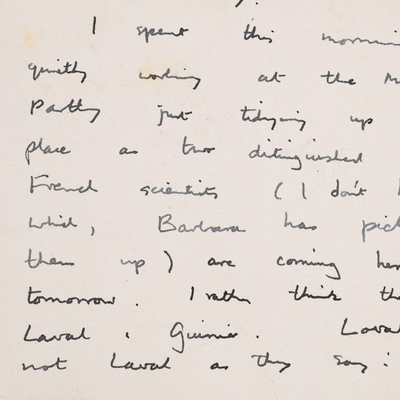 I spent this mornin
quietly working at the M
Partly just tidying up
place as two distinguished
French scientists ( I don't k
which, Barbara has pick
them up ) are coming her
tomorrow. I rather think th
Laval & Guinier. Laval
not Laval as they say: